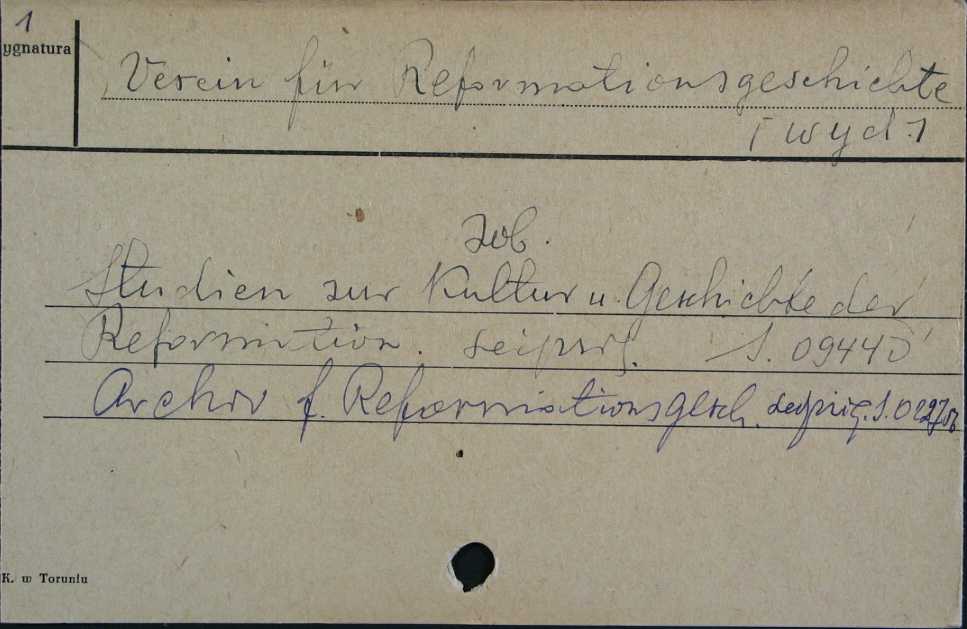 1
ygnatura
Verein für Reformationsgeschichte
[wyd.]
Zob.
Studien zur Kultur u. Geschichte der
Reformation. Leipzig. S. 0944
Archiv f. Reformationsgesch. Leipzig. S. 0227
K. w Toruniu